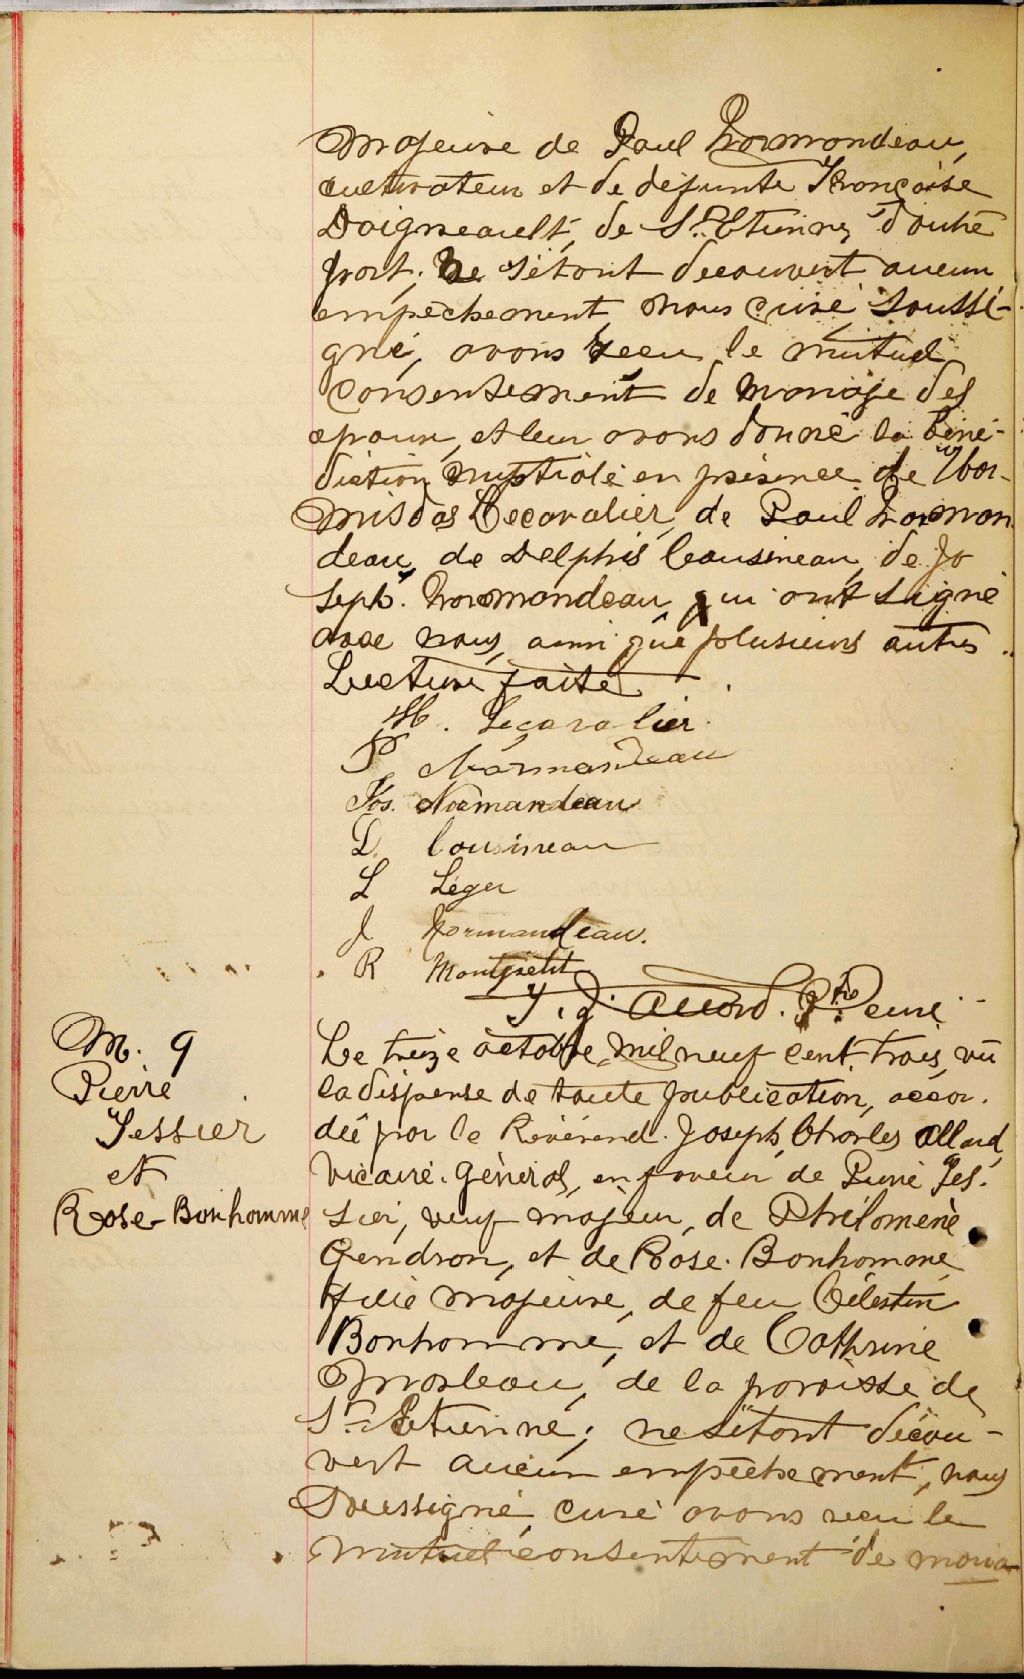 majeure de Paul Normandeau,
cultivateur et de défunte Françoise
Daigneault, de St. Etienne, d'autre
part. Ne s'étant découvert aucun
empêchement nous curé soussi-
gné, avons reçu le mutuel
consentement de mariage des
époux, et leur avons donné la béné-
diction nuptiale en présence de Hor-
misdas Lecavalier, de Paul Norman
deau, de Delphis Cousineau, de Jo
seph. Normandeau, qui ont signé
avec nous, ainsi que plusieurs autres
Lecture faite
H. Lecavalier.
P Normandeau
Jos. Normandeau
D. Cousineau
L Léger
J Normandeau.
R Montpetit
J. Allard. Ptre curé
M. 9
Pierre
Tessier
et
Rose-Bonhomme
Le treize octobre mil neuf cent trois, vu
la dispense de toute publication, accor.
dée par le Révérend. Joseph, Charles Allard,
vicaire. Général, en faveur de Pierre Tes.
sier, veuf majeur, de Philomène
Gendron, et de Rose. Bonhomme
fille majeure, de feu Célestin
Bonhomme, et de Cathrine
Marleau, de la paroisse de
St. Etienne; ne s'étant décou-
vert aucun empêchement, nous
soussigné, curé avons reçu le
mutuel consentement de maria-